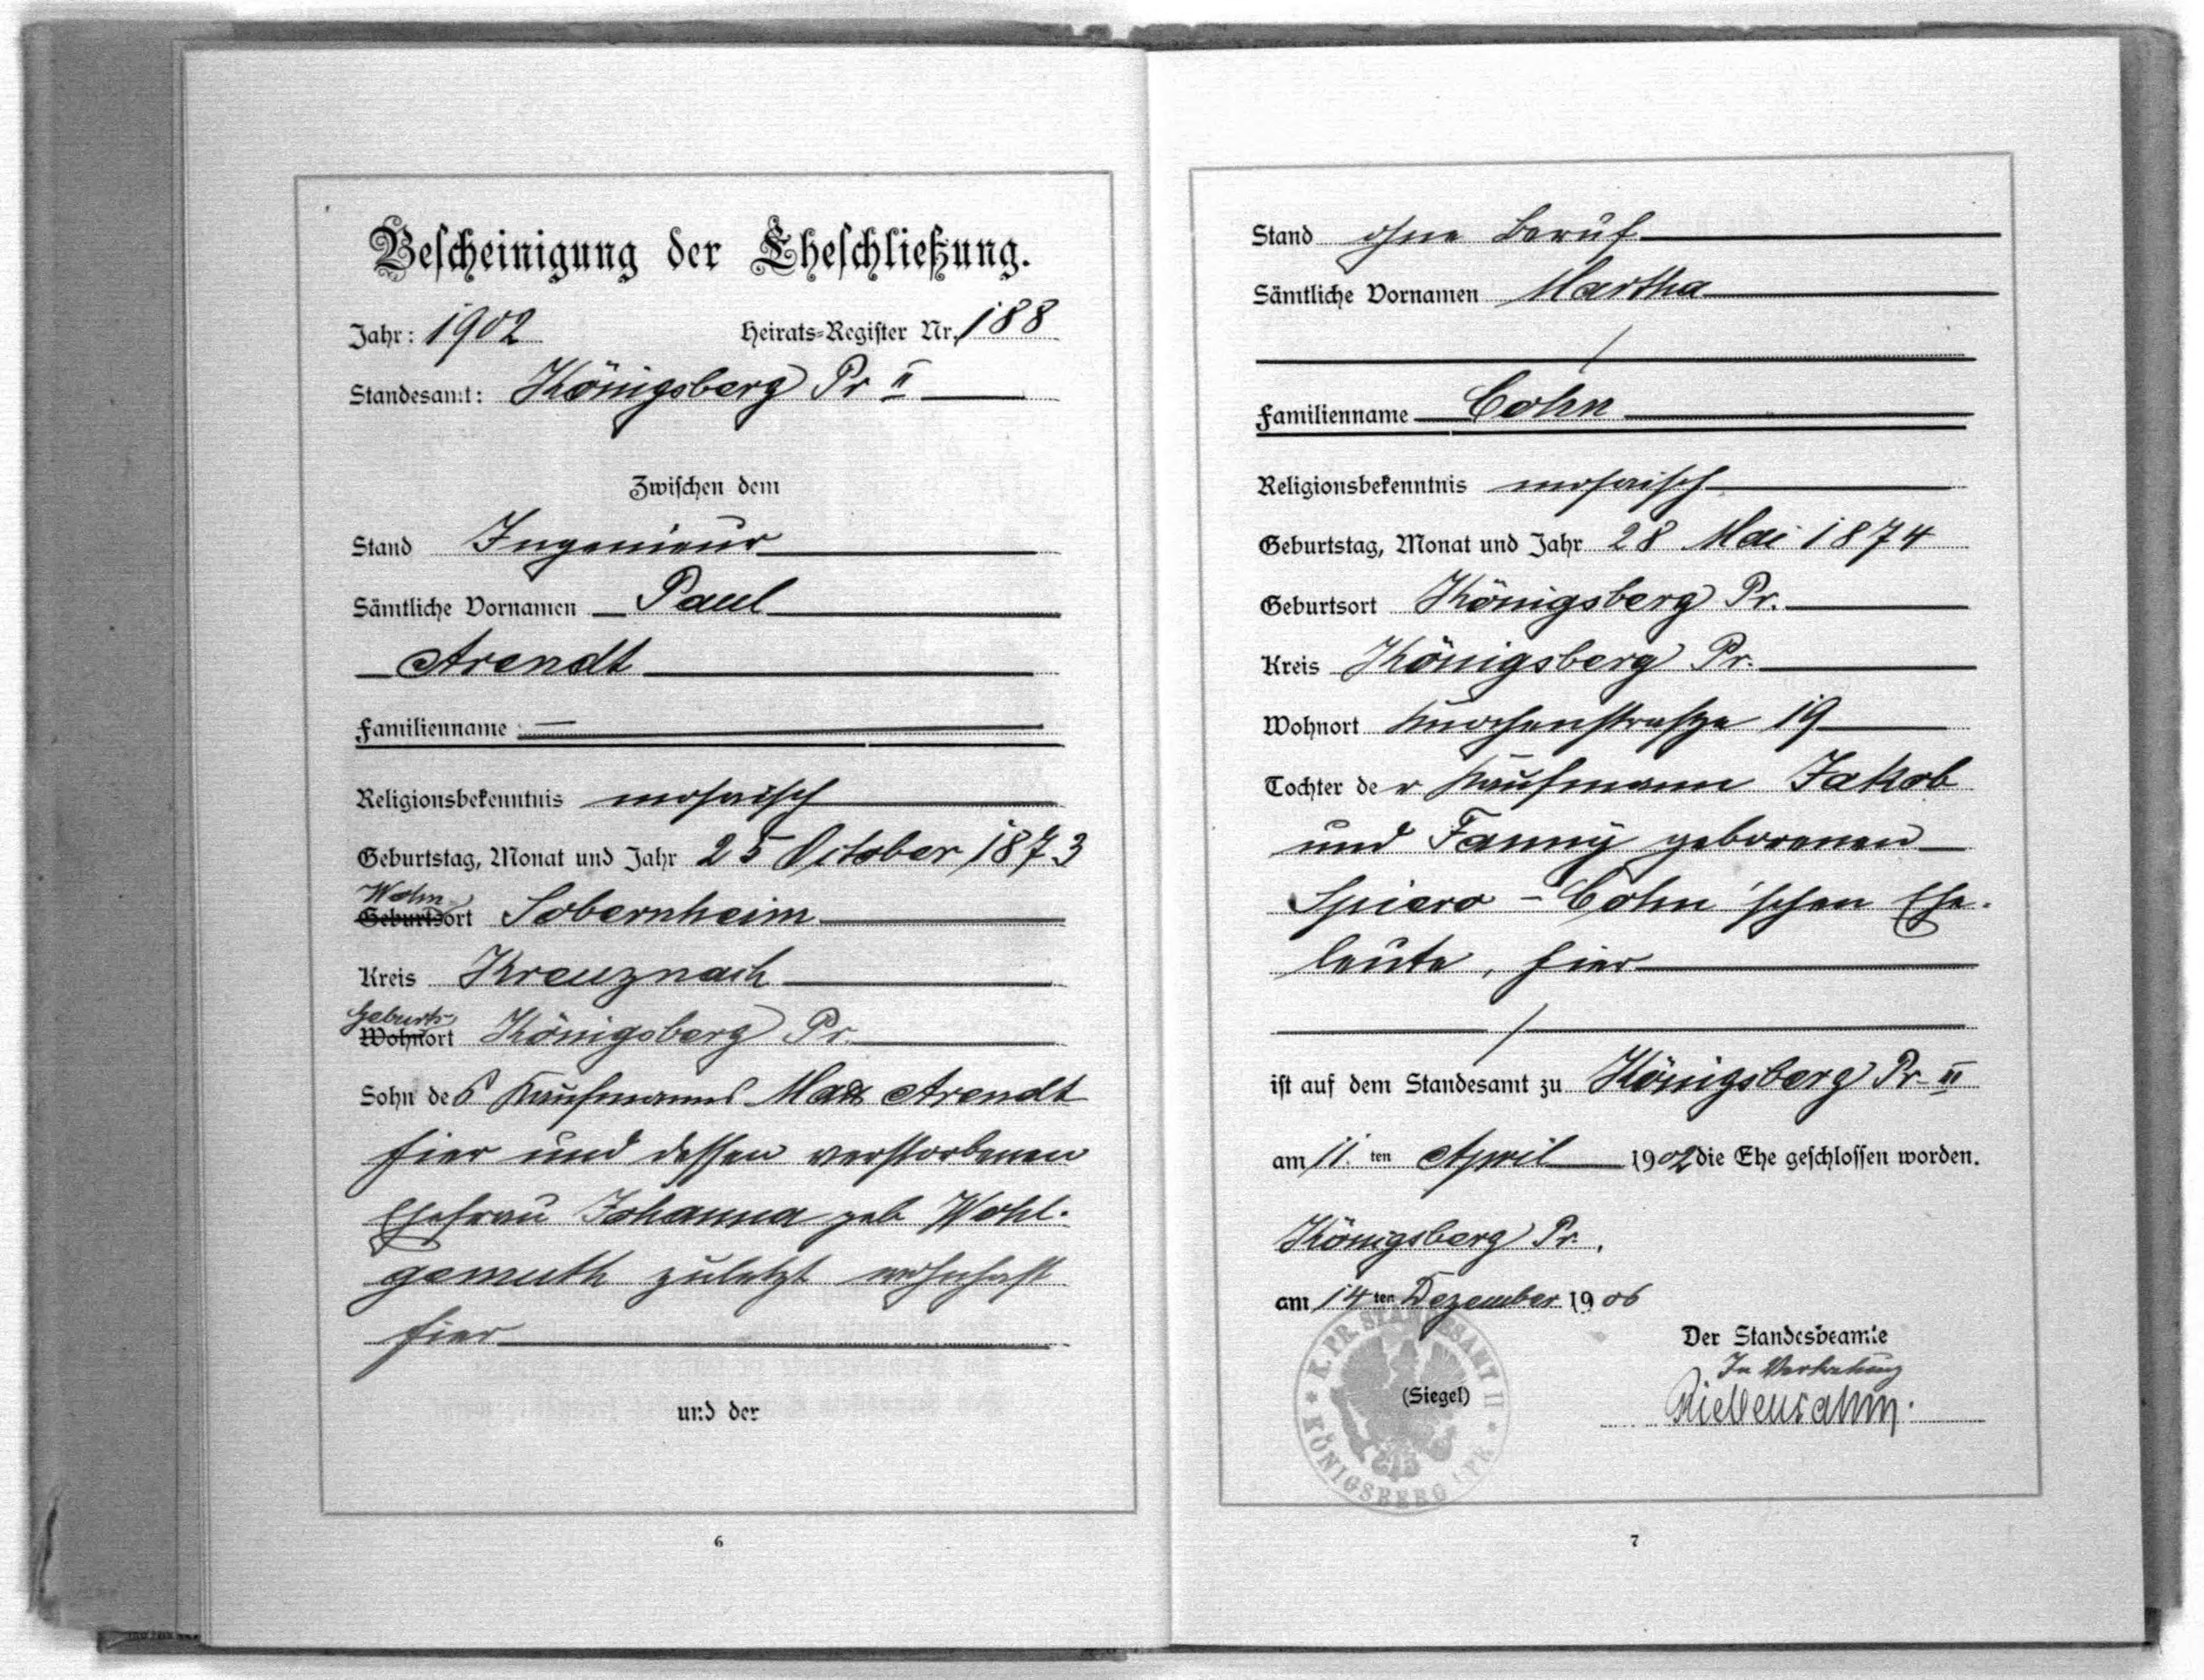 Bescheinigung der Eheschließung.
Jahr: 1902 Heirats-Register Nr. 188
Standesamt: Königsberg Pr II
Zwischen dem
Stand Ingenieur
Sämtliche Vornamen Paul
Arendt
Familienname
Religionsbekenntnis mosaisch
Geburtstag, Monat und Jahr 25 October 1873
Wohn
Geburtsort Sobernheim
Kreis Kreuznach
Geburts
Wohnort Königsberg Pr.
Sohn des Kaufmanns Max Arendt
hier und dessen verstorbenen
Ehefrau Johanna geb Wohl-
gemuth zuletzt wohnhaft
hier
und der
6
Stand ohne Beruf
Sämtliche Vornamen Martha
Familienname Cohn
Religionsbekenntnis mosaisch
Geburtstag, Monat und Jahr 28 Mai 1874
Geburtsort Königsberg Pr.
Kreis Königsberg Pr.
Wohnort Knochenstraße 19
Tochter der Kaufmann Jakob
und Fanny geborenen
Spiero - Cohn'schen Ehe-
leute, hier
ist auf dem Standesamt zu Königsberg Pr. II
am 11. ten April 1902 die Ehe geschlossen worden.
Königsberg Pr.,
am 14 ten Dezember 1906
Der Standesbeamte
In Vertretung
(Siegel)
K. PR. STANDESAMT II
KÖNIGSBERG I/PR.
7